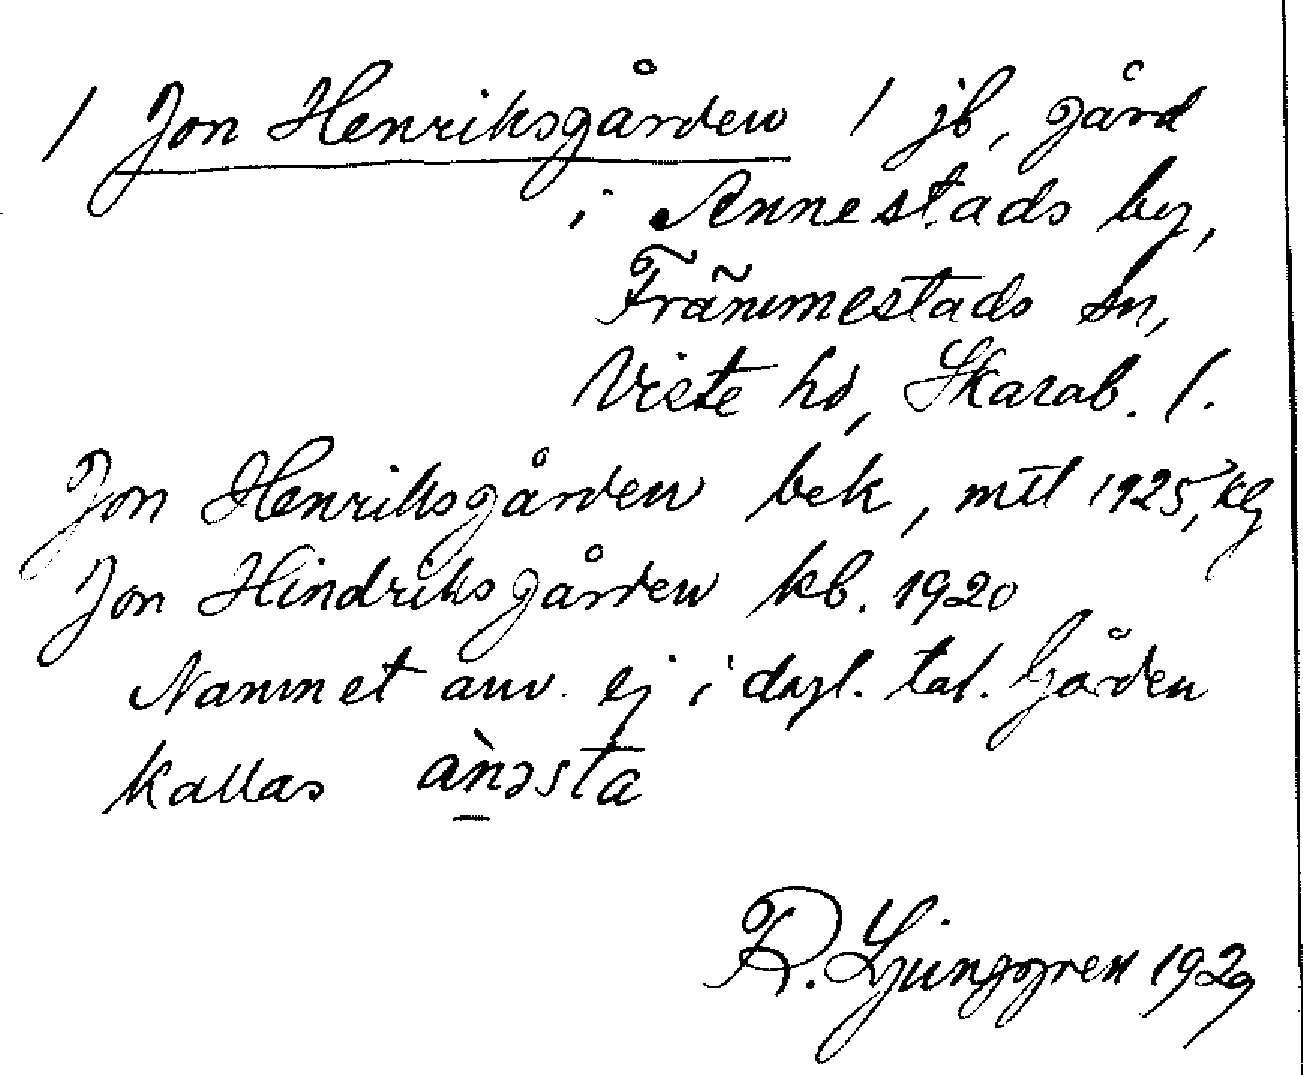 / Jon Henriksgården / jb, gård
i Annestads by,
Främmestads sn,
Viste hd, Skarab. l.
Jon Henriksgården bek, mtl 1925, klg
Jon Hindriksgården kb. 1920
Namnet anv. ej i dagl. tal. Gården
kallas ànəsta
R. Ljunggren 1929